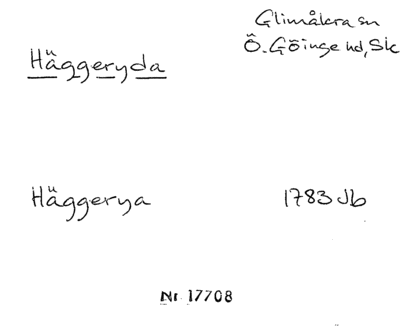 Glimåkra sn
Häggeryda
Ö. Göinge hd, Sk
Häggerya 1783 Jb
Nr 17708